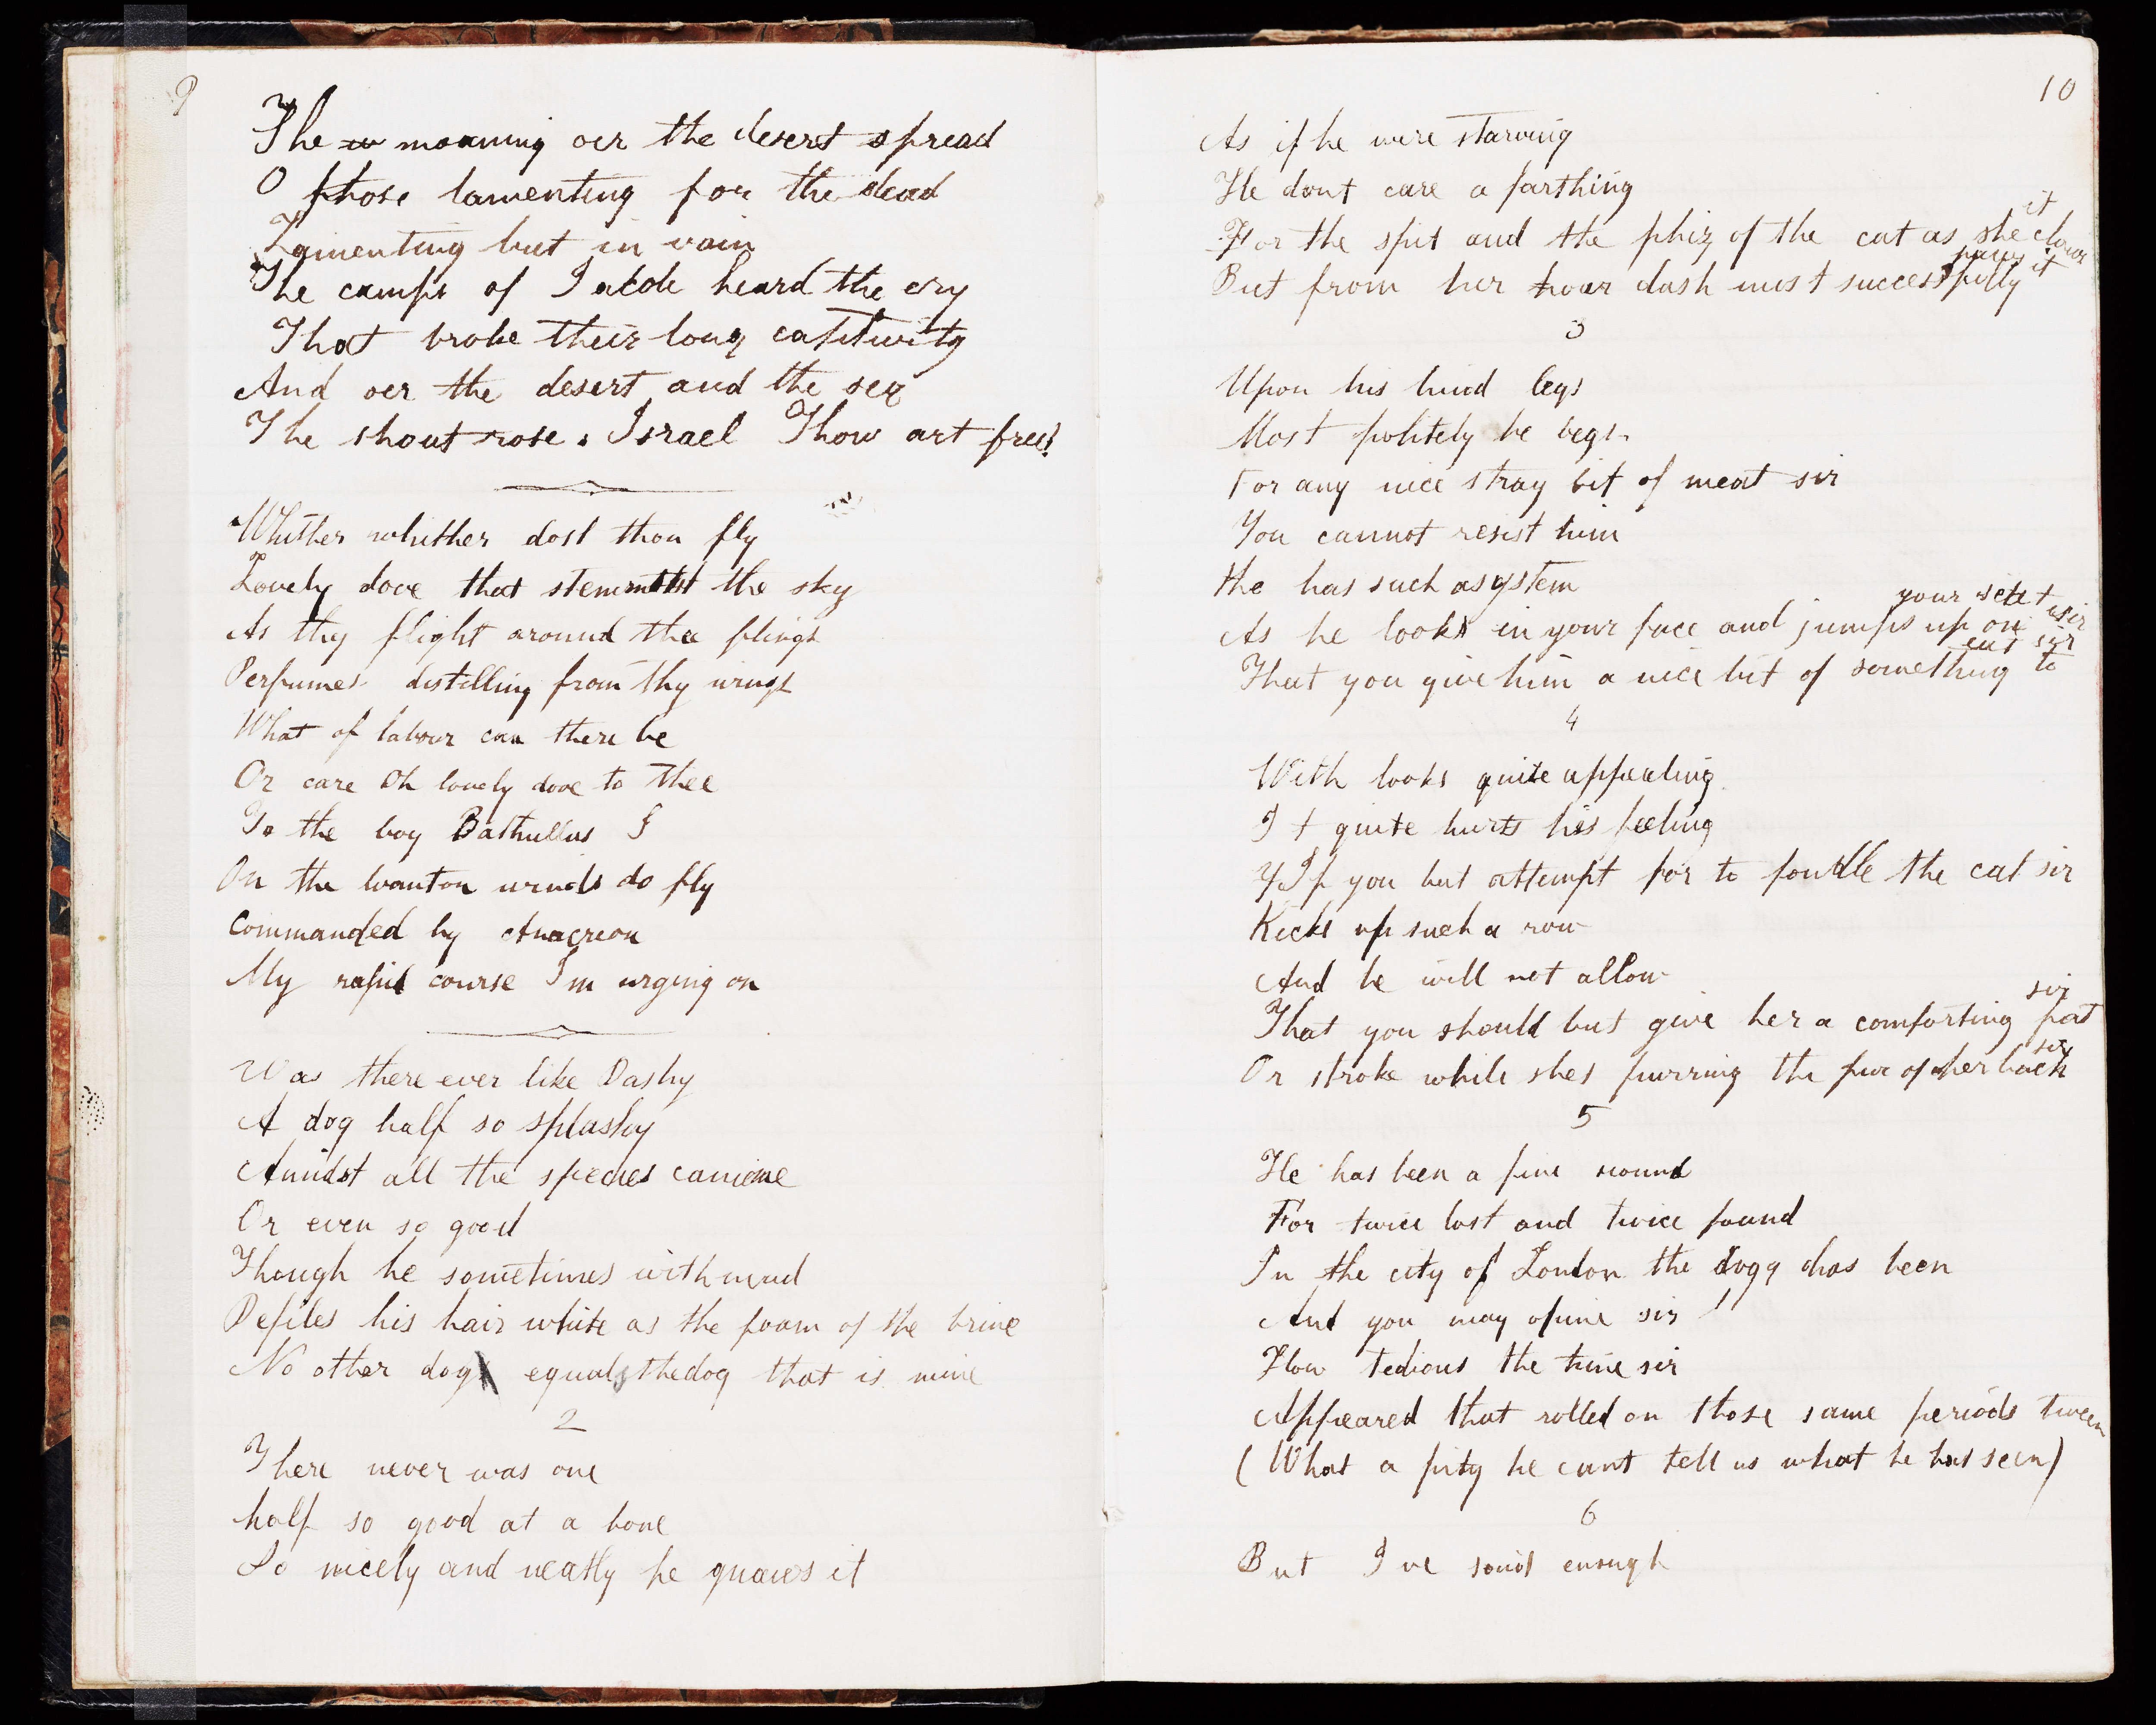 9
The moaning oer the desert spread
O those lamenting for the dead
Lamenting but in vain
The camps of Jacob heard the cry
That broke their long captivity
And oer the desert and the sea
The shout rose. Israel Thou art free!
Whither whither dost thou fly
Lovely dove that stemmst the sky
As thy flight around thee flings
Perfumes distilling from thy wings
What of labour can there be
Or care Oh lovely dove to thee
To the boy Bathullus I
On the wanton winds do fly
Commanded by Anacreon
My rapid course Im urging on
Was there ever like Dashy
A dog half so splashy
Amidst all the species canine
Or even so good
Though he sometimes with mud
Defiles his hair white as the foam of the brine
No other dog equals the dog that is mine
2
There never was one
half so good at a bone
So nicely and neatly he gnaws it
10
As if he were starving
He dont care a farthing
For the spit and the phiz of the cat as she claws it
But from her paws dash most successfully it
3
Upon his hind legs
Most politely he begs
For any nice stray bit of meat sir
You cannot resist him
He has such asystem
As he looks in your face and jumps up on your seat sir
That you give him a nice bit of something to eat sir
4
With looks quite appealing
It quite hurts his feeling
If you but attempt for to fondle the cat sir
Kicks up such a row
And he will not allow
That you should but give her a comforting pat sir
Or stroke while shes purring the fur of her back sir
5
He has been a fine round
For twice lost and twice found
In the city of London the dogg has been
And you may opine sir
How tedious the time sir
Appeared that rolled on those same periods tween
(What a pity he cant tell us what he has seen)
6
But Ive said enough